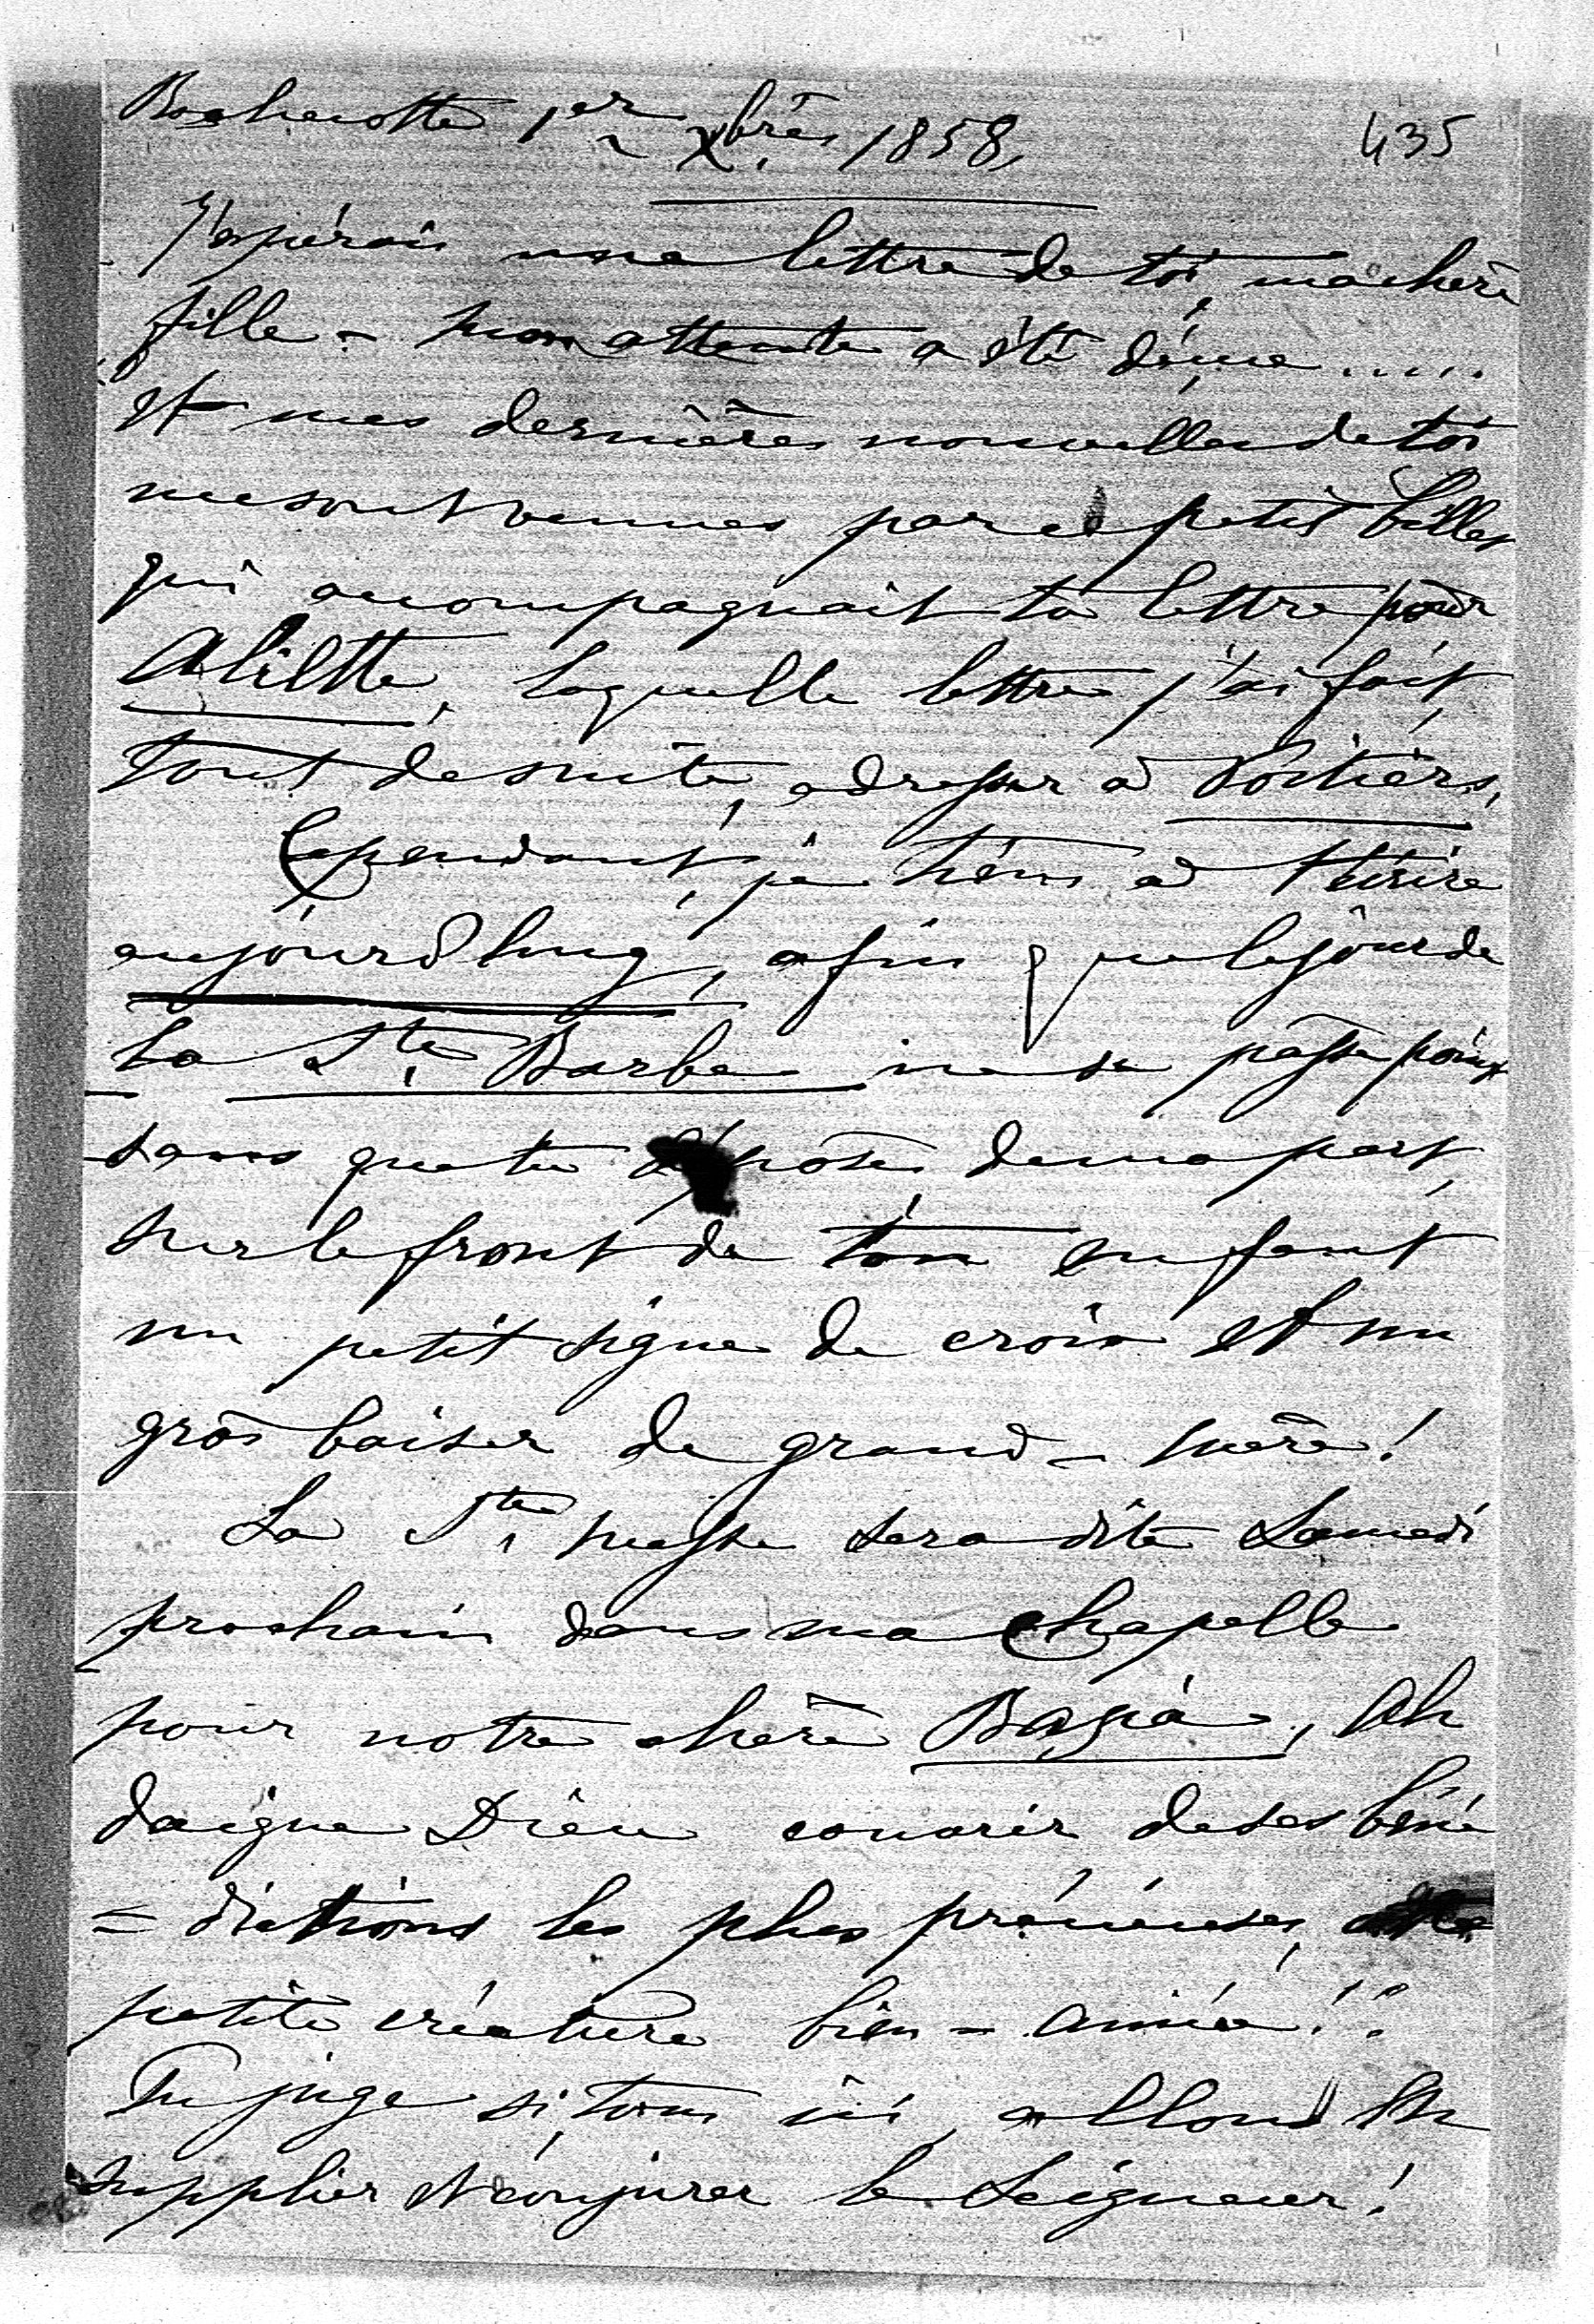 Rochecotte 1er Xbre 1858, 435
J'espérais une lettre de toi, ma chère
fille - mon attente a été déçue .....
Et mes dernières nouvelles de toi
me sont venues par ce petit billet
qui accompagnait ta lettre pour
Alilette, laquelle lettre j'ai fait,
tout de suite, adresser à Poitiers,
Cependant, je tiens à t'écrire
aujourd'huy, afin que le jour de
la Ste Barbe ne se passe point
sans que tu déposes de ma part,
sur le front de ton enfant
un petit signe de croix et un
gros baiser de grand-mère!
La Ste messe sera dite Samedi
prochain dans ma Chapelle
pour notre chère Basia, Ah
daigne Dieu couvrir de ses béné
=dictions les plus précieuses,
petite créature bien-aimée!!
Tu juge si, tous ici, allons Le
supplier et conjurer le Seigneur!